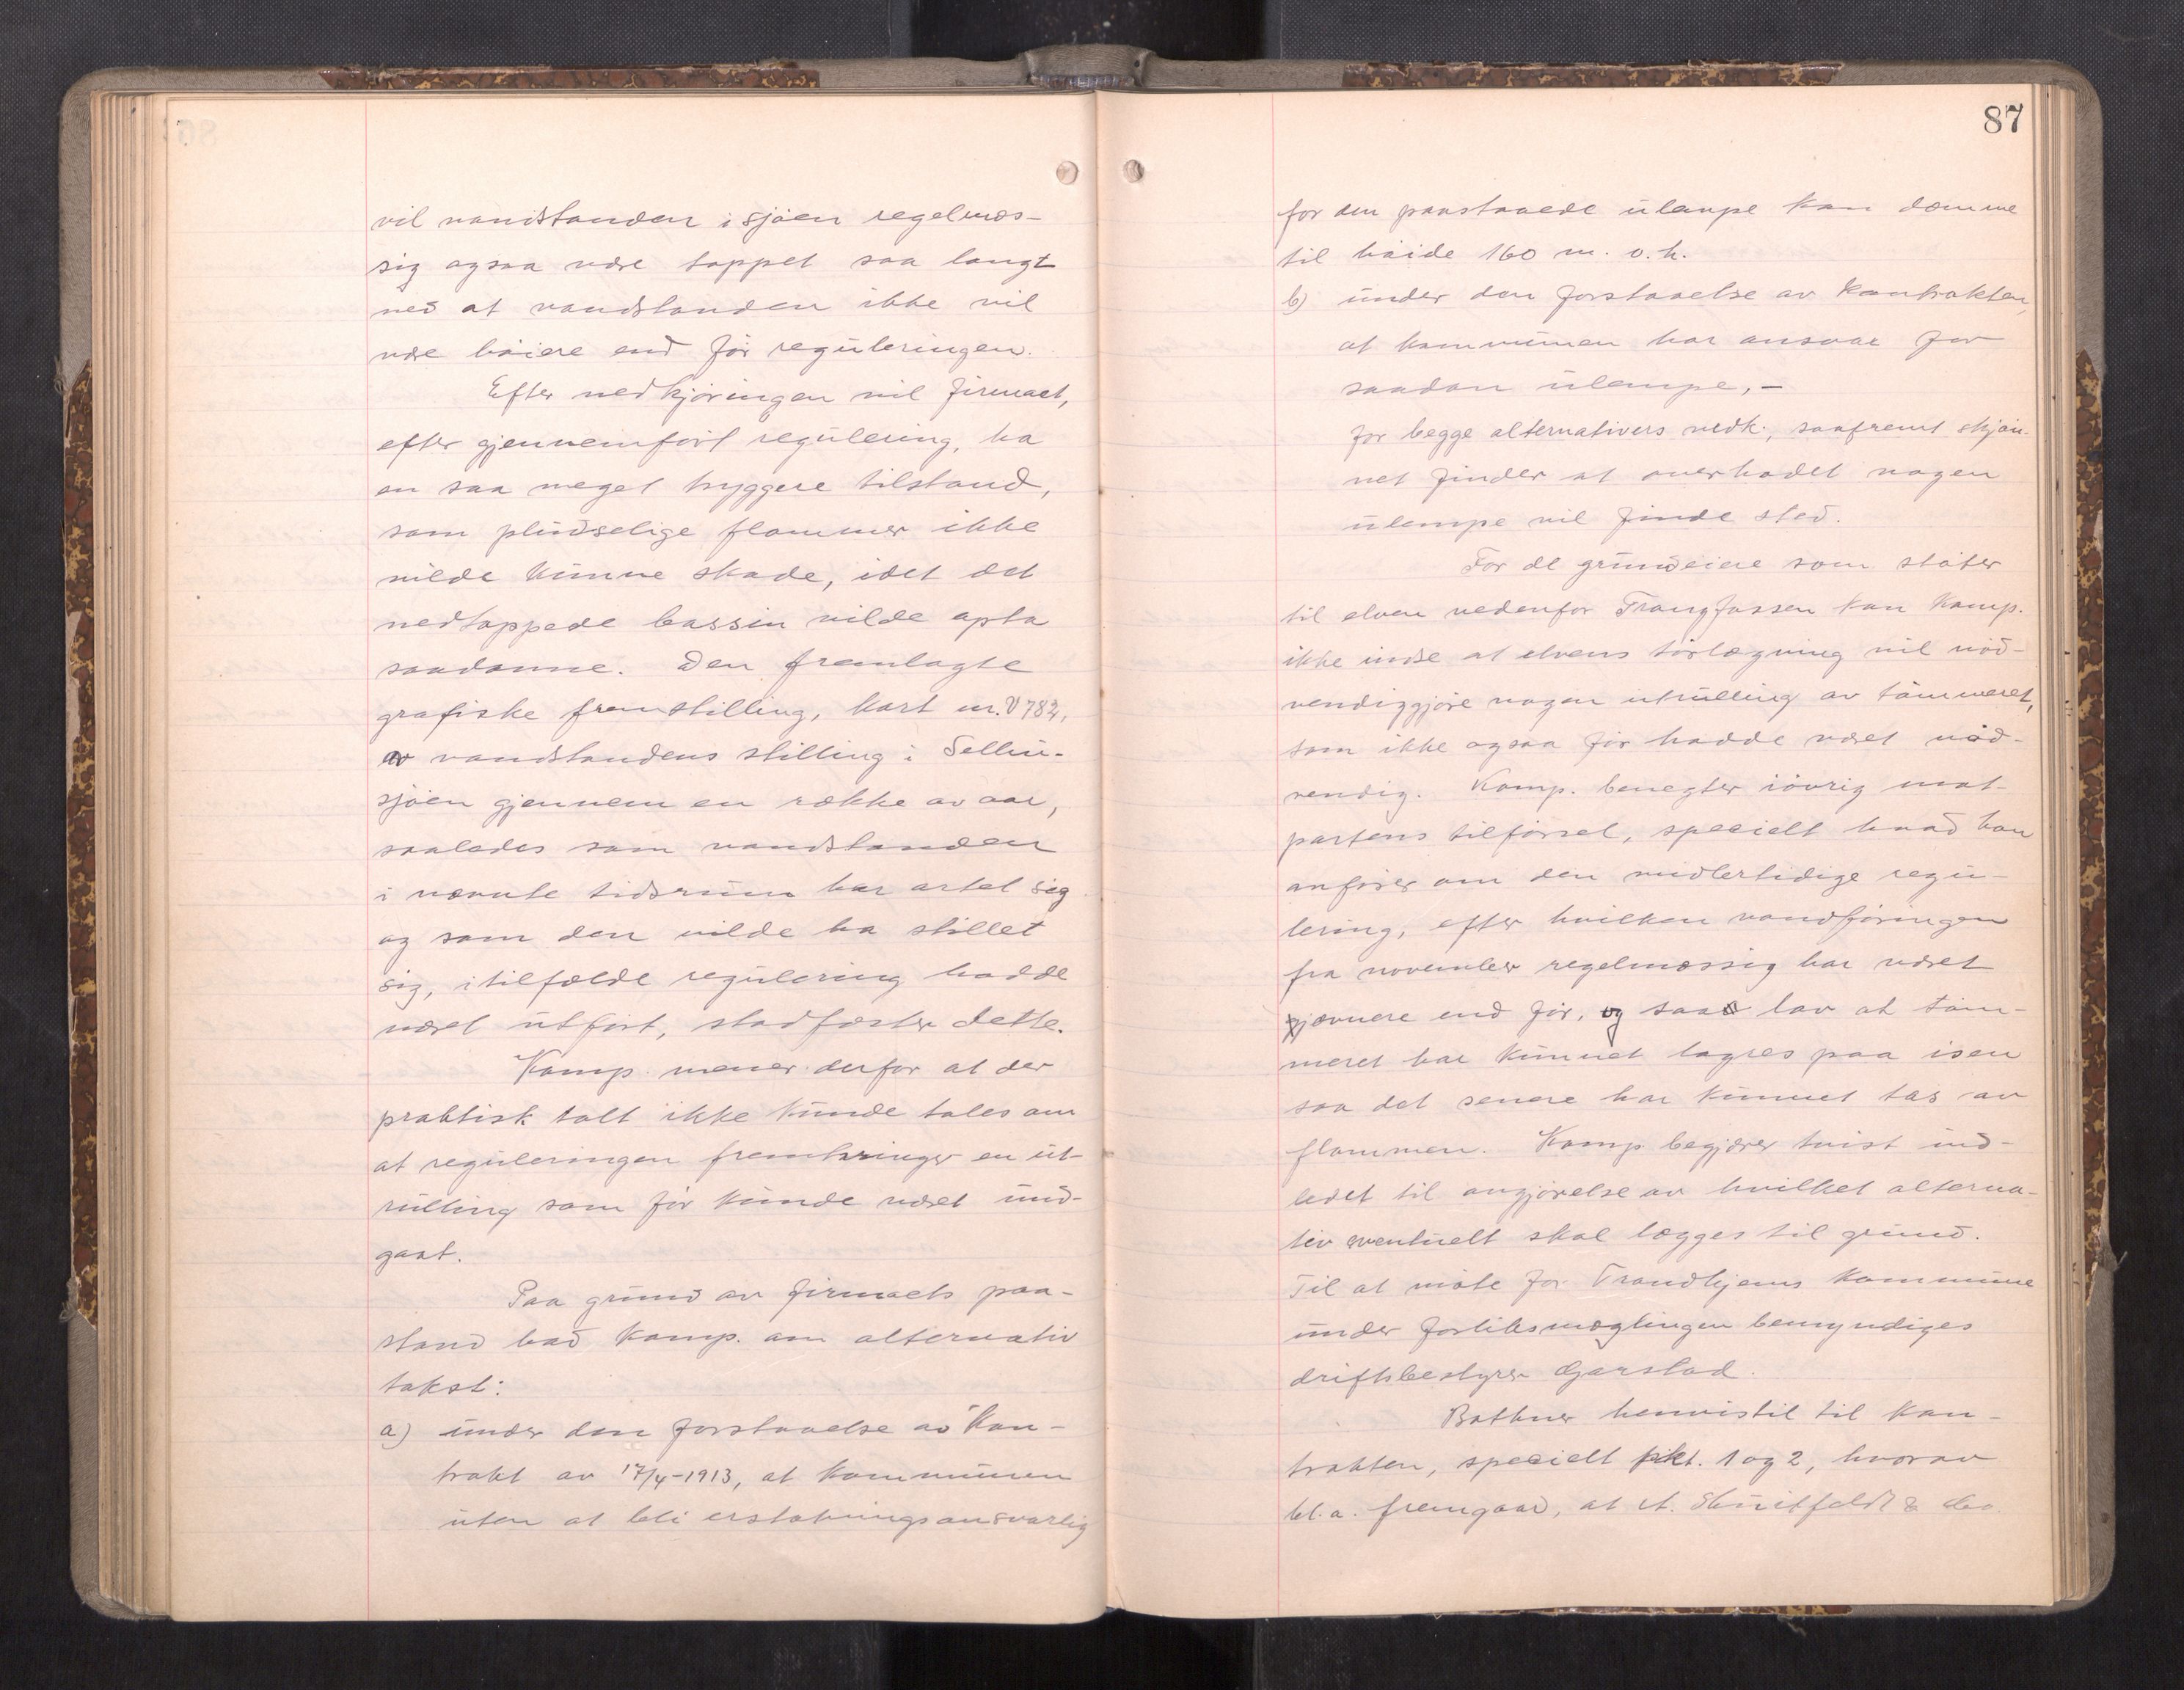 vil vandstanden i sjøen regelmæs-
sig ogsaa være tappet saa langt
ned at vandstanden ikke vil
være høiere end før reguleringen.
Efter nedkjøringen vil firmaet,
efter gjennemført regulering, ha
en saa meget tryggere tilstand,
som pludselige flommer ikke
vilde kunne skade, idet det
nedtappede bassin vilde opta
saadanne. Den fremlagte
grafiske fremstilling, kart nr. V 782,
av vandstandens stilling i Selbu-
sjøen gjennem en række av aar,
saaledes som vandstanden
i nævnte tidsrum har artet sig
og som den vilde ha stillet
sig, i tilfælde regulering hadde
været utført, stadfæster dette.
Komp. mener derfor at der
praktisk talt ikke kunde tales om
at reguleringen frembringer en ut-
rulling som før kunde været und-
gaat.
Paa grund av firmaets paa-
stand bad komp. om alternativ
takst:
a) under den forstaaelse av kon-
trakt av 17/4-1913, at kommunen
uten at bli erstatningsansvarlig
87
for den paastaaede ulempe kan dæmme
til høide 160 m. o. h.
b) under den forstaaelse av kontrakten,
at kommunen har ansvar for
saadan ulempe, -
for begge alternativers vedk., saafremt skjøn-
net finder at overhodet nogen
ulempe vil finde sted.
For de grundeiere som støter
til elven nedenfor Trangfossen kan komp.
ikke indse at elvens tørlægning vil nød-
vendiggjøre nogen utrulling av tømmeret,
som ikke ogsaa før hadde været nød-
vendig. Komp. benegter iøvrig mot-
partens tilførsel, specielt hvad han
anfører om den midlertidige regu-
lering, efter hvilken vandføringen
fra november regelmæssig har været
jævnere end før, og saa lav at tøm-
meret har kunnet lagres paa isen
saa det senere har kunnet tas av
flommen. Komp. begjærer tvist ind-
ledet til avgjørelse av hvilket alterna-
tiv eventuelt skal lægges til grund.
Til at møte for Trondhjems kommune
under forliksmæglingen bemyndiges
driftsbestyrer Gjarstad.
Bothner henvistil til kon-
trakten, specielt pkt. 1 og 2, hvorav
bl. a. fremgaar, at A. Huitfeldt & Co